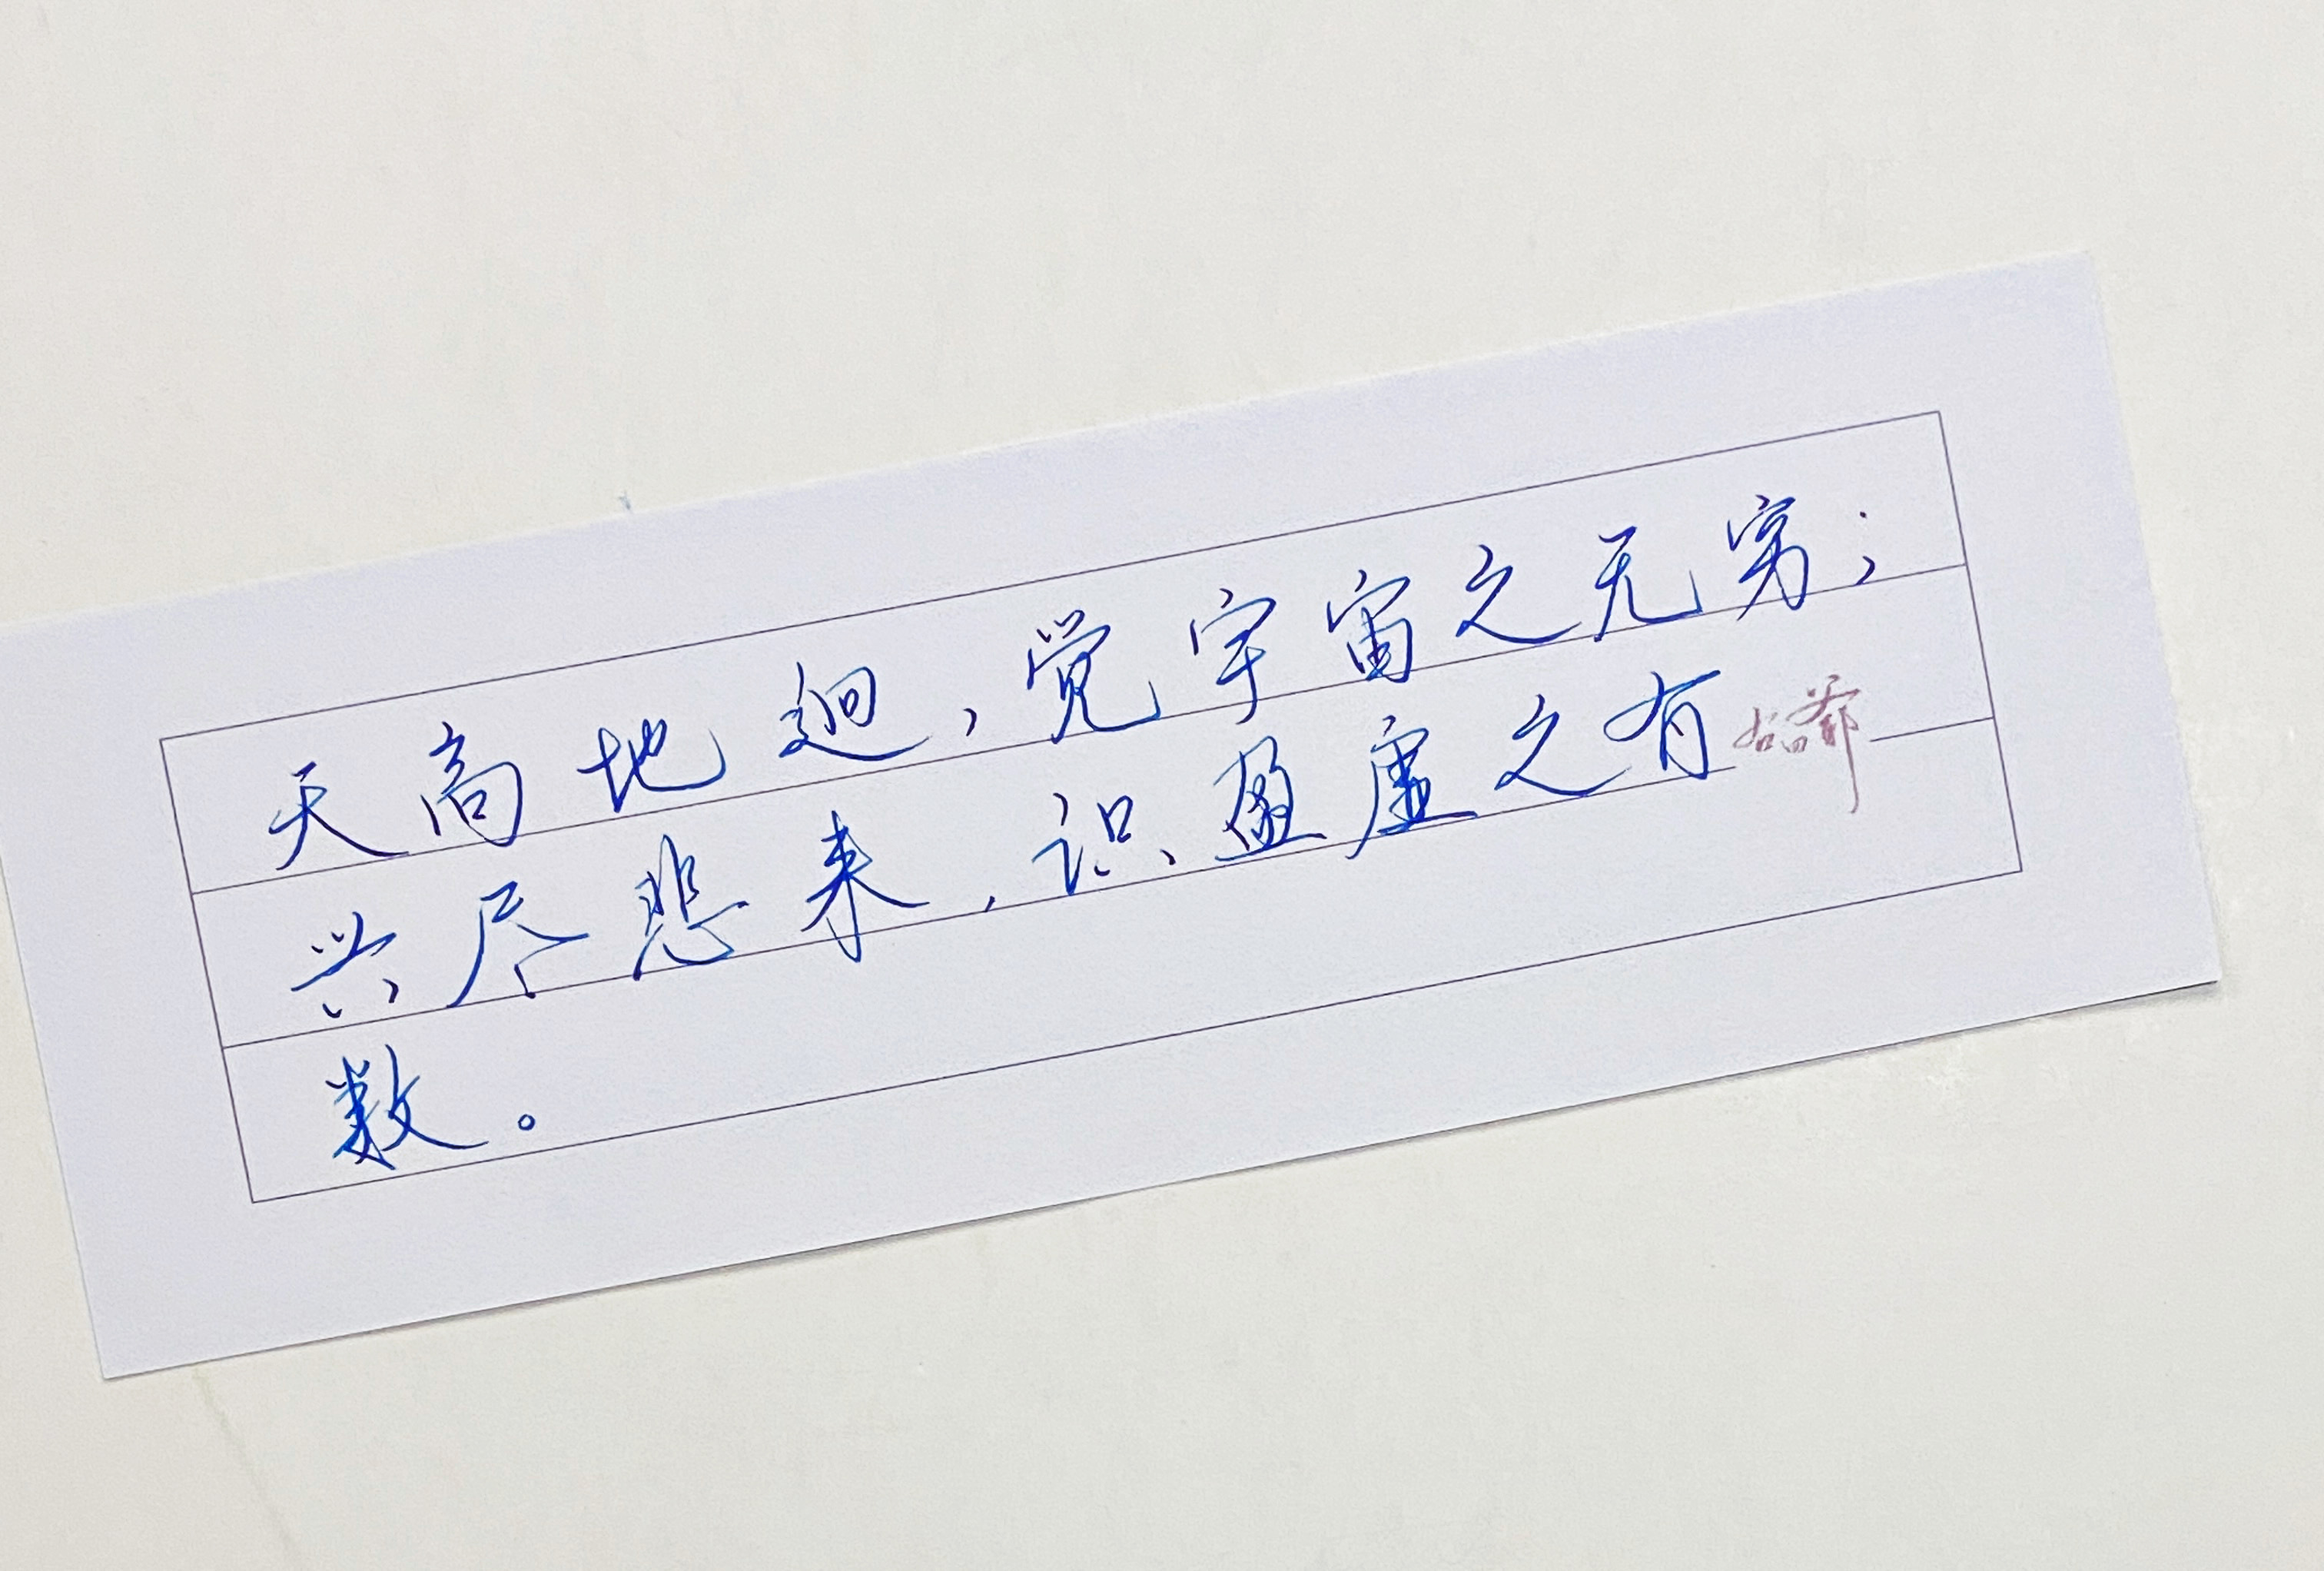 天高地迥，觉宇宙之无穷；
兴尽悲来，识盈虚之有
数。